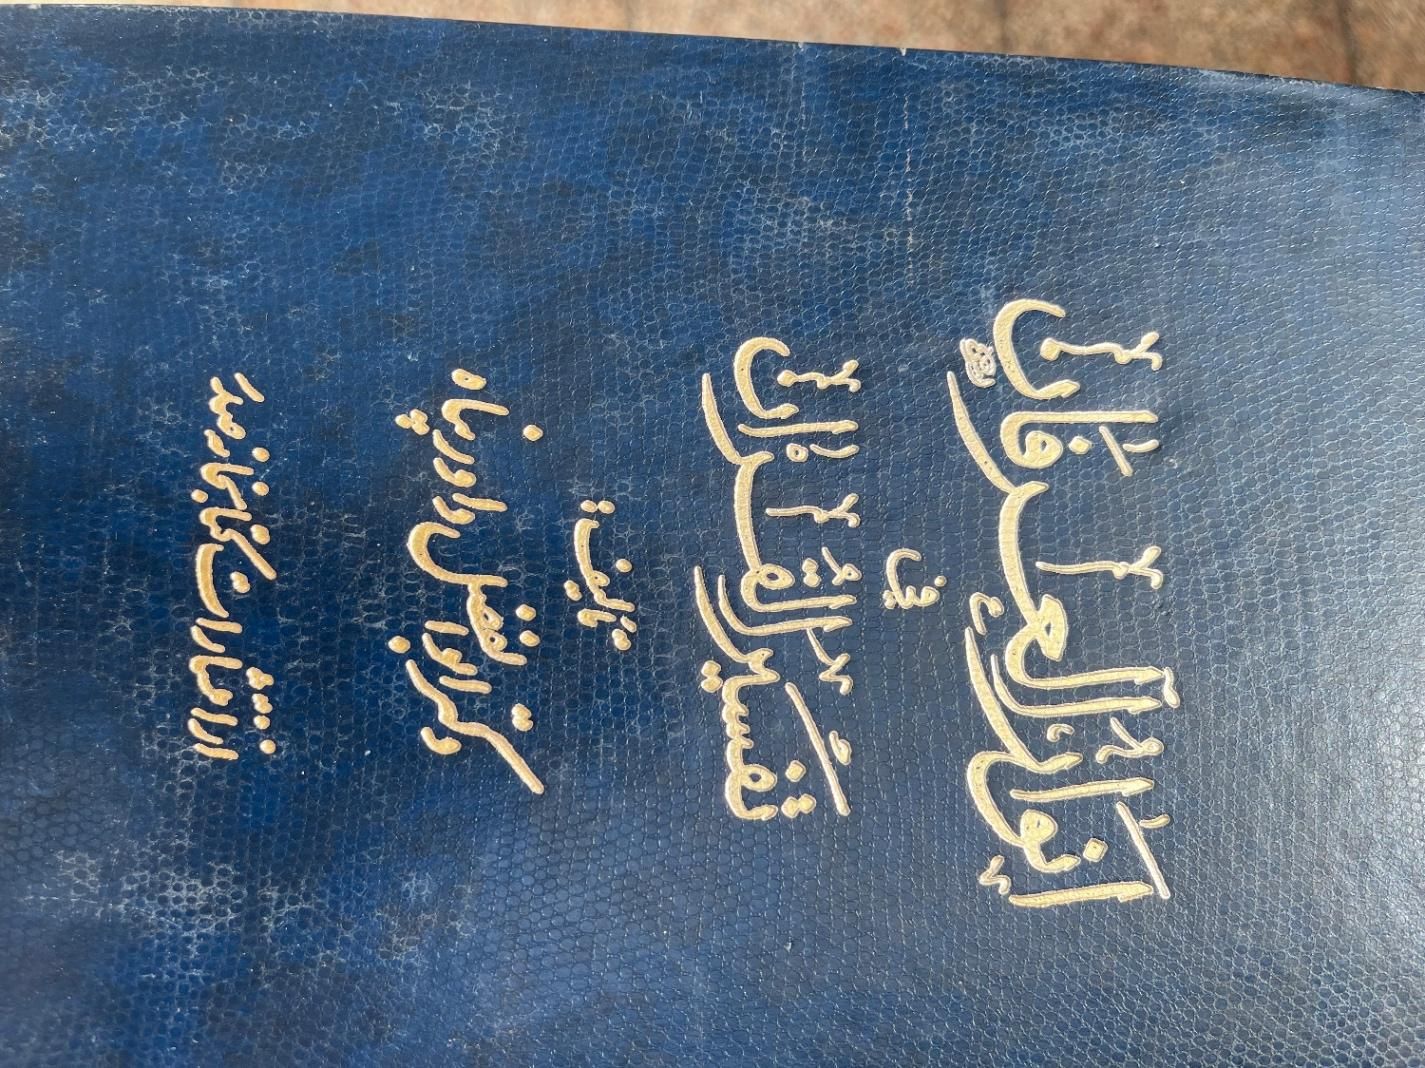 انوار العرفان
فی
تفسیر القرآن
تألیف:
دکتر ابوالفضل داورپناه
از انتشارات کتابخانه صدر